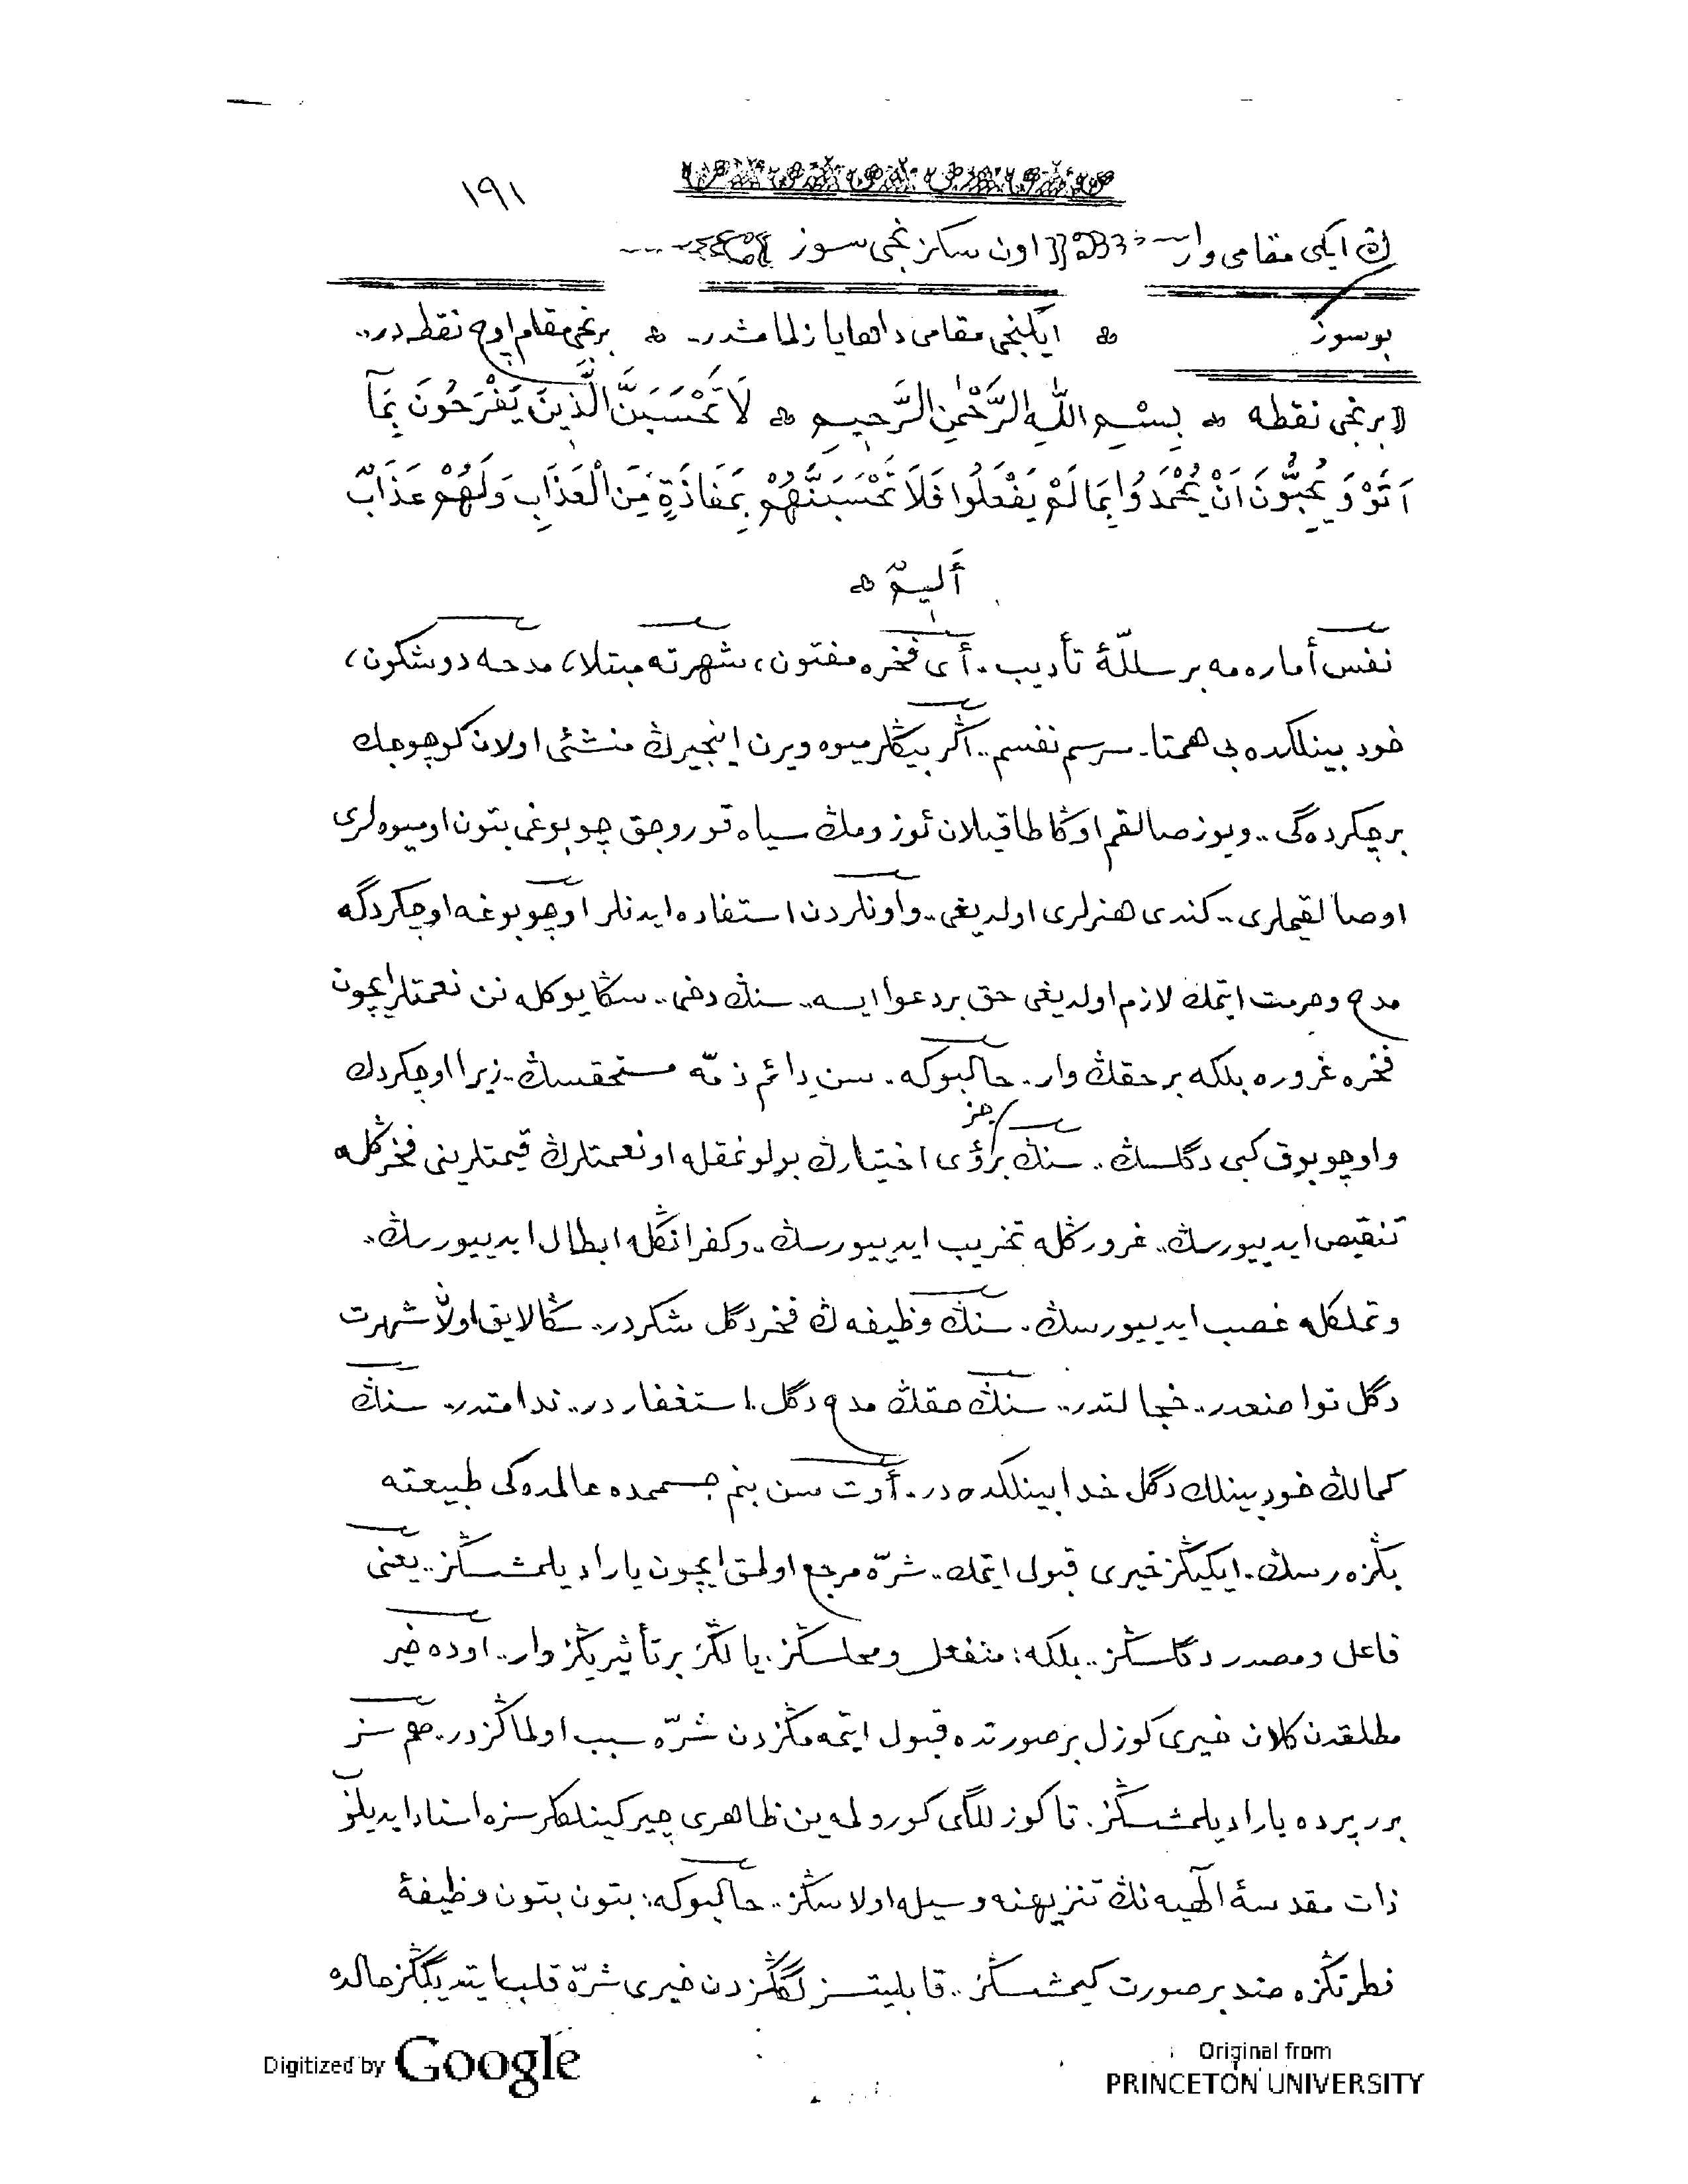 ١٩١
اون سكزنجى سوز
ڭ ايكى مقامى وار
بوسوز ۞ ايكنجى مقامى داها يازلمامشدر ۞ برنجى مقام اوچ نقطه در..
برنجى نقطه ۞ بِسْمِ اللّٰهِ الرَّحْمٰنِ الرَّحِيمِ ۞ لَا تَحْسَبَنَّ الَّذِينَ يَفْرَحُونَ بِمَآ
اَتَوْ وَ يُحِبُّونَ اَنْ يُحْمَدُوا بِمَا لَمْ يَفْعَلُوا فَلَا تَحْسَبَنَّهُمْ بِمَفَازَةٍ مِنَ الْعَذَابِ وَلَهُمْ عَذَابٌ
أَلِيمٌ ۞
نفس أماره مه بر سلّلۀ تأديب. أى فخره مفتون، شهرته مبتلا، مدحه دوشكون،
خود بينلكده بى همتا. سرسم نفسم.. اڭر بيڭلر ميوه ويرن اينجيرڭ منشئى اولان كوچوجك
بر چكرده گى.. ويوز صالقم اوڭا طاقيلان ئوزومڭ سياه قوروجق چوبوغى بتون او ميوه لرى
او صالقيملرى.. كندى هنرلرى اولديغى.. و اونلردن استفاده ايدنلر او چوبوغه او چكردگه
مدح و حرمت ايتمك لازم اولديغى حق بر دعوا ايسه.. سنڭ دخى.. سڭا يوكله نن نعمتلر ايچون
فخره غروره بلكه بر حقڭ وار. حالبوكه. سن دائم ذمّه مستحقسڭ. زيرا او چكردك
و او چوبوق كبى دگلسڭ.. سنڭ بر جزؤى اختيارڭ بولونمقله او نعمتلرڭ قيمتلرينى فخرڭله
تنقيص ايدييورسڭ.. غرورڭله تخريب ايدييورسڭ.. و كفرانڭله ابطال ايدييورسڭ..
و تملكله غصب ايدييورسڭ. سنڭ وظيفه ڭ فخر دگل شكردر.. سڭا لايق اولان شهرت
دگل تواضعدر.. خجالتدر.. سنڭ حقڭ مدح دگل. استغفاردر.. ندامتدر. سنڭ
كمالڭ خود بينلك دگل خدا بينلكده در. أوت سن بنم جسممده عالمده كى طبيعته
بڭزه رسڭ. ايكيڭز خيرى قبول ايتمك.. شرّه مرجع اولمق ايچون ياراديلمشسڭز.. يعنى
فاعل و مصدر دگلسڭز.. بلكه: منفعل و محلسڭز. يالڭز بر تأثيريڭز وار.. اوده خير
مطلقدن كلان خيرى كوزل بر صورتده قبول ايتمه مڭزدن شرّه سبب اولماڭزدر. هم سز
برر پرده ياراديلمشسڭز. تا كوزللگى كورولمه ين ظاهرى چيركينلكلر سزه اسناد ايديلوب
ذات مقدسۀ الٰهيه نڭ تنزيهنه وسيله اولاسڭز.. حالبوكه: بتون بتون وظيفۀ
فطرتڭزه ضد بر صورت كيمشسڭز.. قابليتسزلگڭزدن خيرى شرّه قلب ايتديگڭز حالده
Digitized by Google
Original from
PRINCETON UNIVERSITY